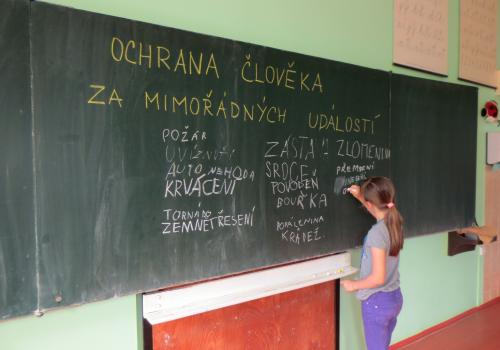 OCHRANA ČLOVĚKA
ZA MIMOŘÁDNÝCH UDÁLOSTÍ
POŽÁR
UVÍZNUTÍ
AUTONEHODA
KRVÁCENÍ
TORNÁDO
ZEMNETŘESENÍ
ZÁSTA
SRDCE
POVODEŇ
BOUŘKA
POPÁLENINA
KRÁDEŽ.
ZLOMENINA